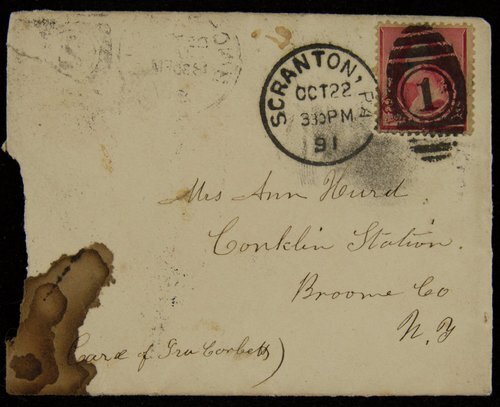 SCRANTON, PA
OCT 22
330PM
91
1
Mrs Ann Hurd
Conklin Station.
Broome Co
N. Y
(Care of Ira Corbett)